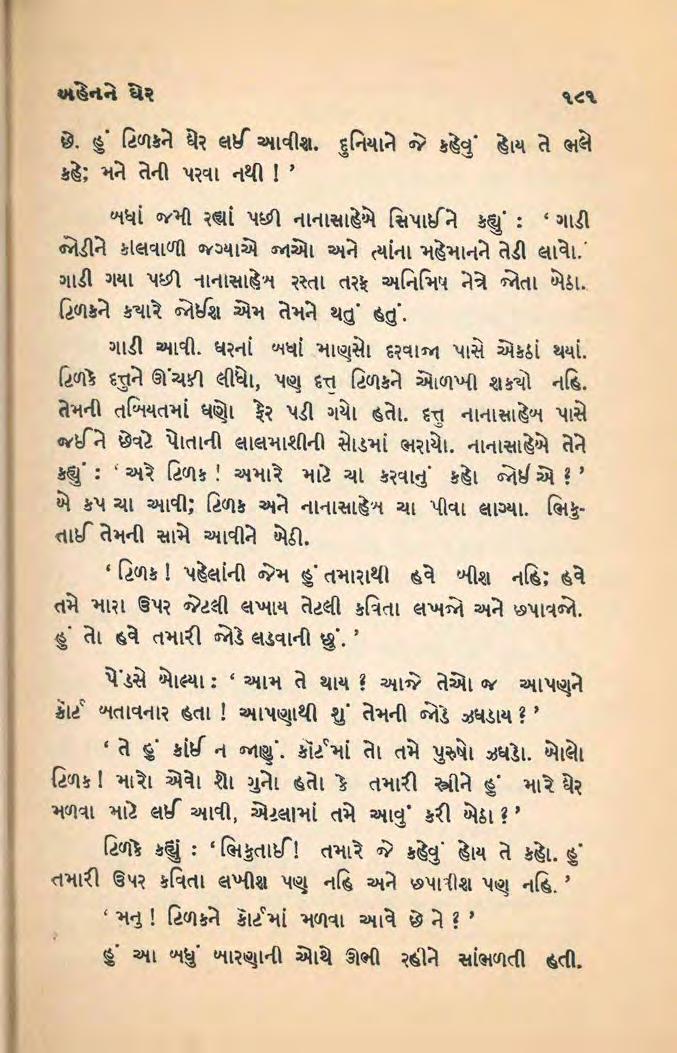 બહેનને ઘેર ૧૮૧
છે. હું ટિળકને ઘેર લઈ આવીશ. દુનિયાને જે કહેવું હોય તે ભલે
કહે; મને તેની પરવા નથી ! ’
બધાં જમી રહ્યાં પછી નાનાસાહેબે સિપાઈને કહ્યું : ‘ ગાડી
જોડીને કાલવાળી જગ્યાએ જાઓ અને ત્યાંના મહેમાનને તેડી લાવો.’
ગાડી ગયા પછી નાનાસાહેબ રસ્તા તરફ અનિમિષ નેત્રે જોતા બેઠા.
ટિળકને કયારે જોઈશ એમ તેમને થતું હતું.
ગાડી આવી. ઘરનાં બધાં માણસો દરવાજા પાસે એકઠાં થયાં.
ટિળકે દત્તુને ઊંચકી લીધો, પણ દત્તુ ટિળકને ઓળખી શકયો નહિ.
તેમની તબિયતમાં ઘણો ફેર પડી ગયો હતો. દત્તુ નાનાસાહેબ પાસે
જઈને છેવટે પોતાની લાલમાશીની સોડમાં ભરાયો. નાનાસાહેબે તેને
કહ્યું : ‘ અરે ટિળક ! અમારે માટે ચા કરવાનું કહો જોઈએ ? ’
બે કપ ચા આવી; ટિળક અને નાનાસાહેબ ચા પીવા લાગ્યા. ભિકુ-
તાઈ તેમની સામે આવીને બેઠી.
‘ ટિળક ! પહેલાંની જેમ હું તમારાથી હવે બીશ નહિ; હવે
તમે મારા ઉપર જેટલી લખાય તેટલી કવિતા લખજો અને છપાવજો.
હું તો હવે તમારી જોડે લડવાની છું. ’
પેંડસે બોલ્યા : ‘ આમ તે થાય ? આજે તેઓ જ આપણને
કૉર્ટ બતાવનાર હતા ! આપણાથી શું તેમની જોડે ઝઘડાય ? ’
‘ તે હું કાંઈ ન જાણું. કૉર્ટમાં તો તમે પુરુષો ઝઘડો. બોલો
ટિળક ! મારો એવો શો ગુનો હતો કે તમારી સ્ત્રીને હું મારે ઘેર
મળવા માટે લઈ આવી, એટલામાં તમે આવું કરી બેઠા ? ’
ટિળકે કહ્યું : ‘ ભિકુતાઈ! તમારે જે કહેવું હોય તે કહો. હું
તમારી ઉપર કવિતા લખીશ પણ નહિ અને છપાવીશ પણ નહિ. ’
‘ મનુ ! ટિળકને કૉર્ટમાં મળવા આવે છે ને ? ’
હું આ બધું બારણાની ઓથે ઊભી રહીને સાંભળતી હતી.